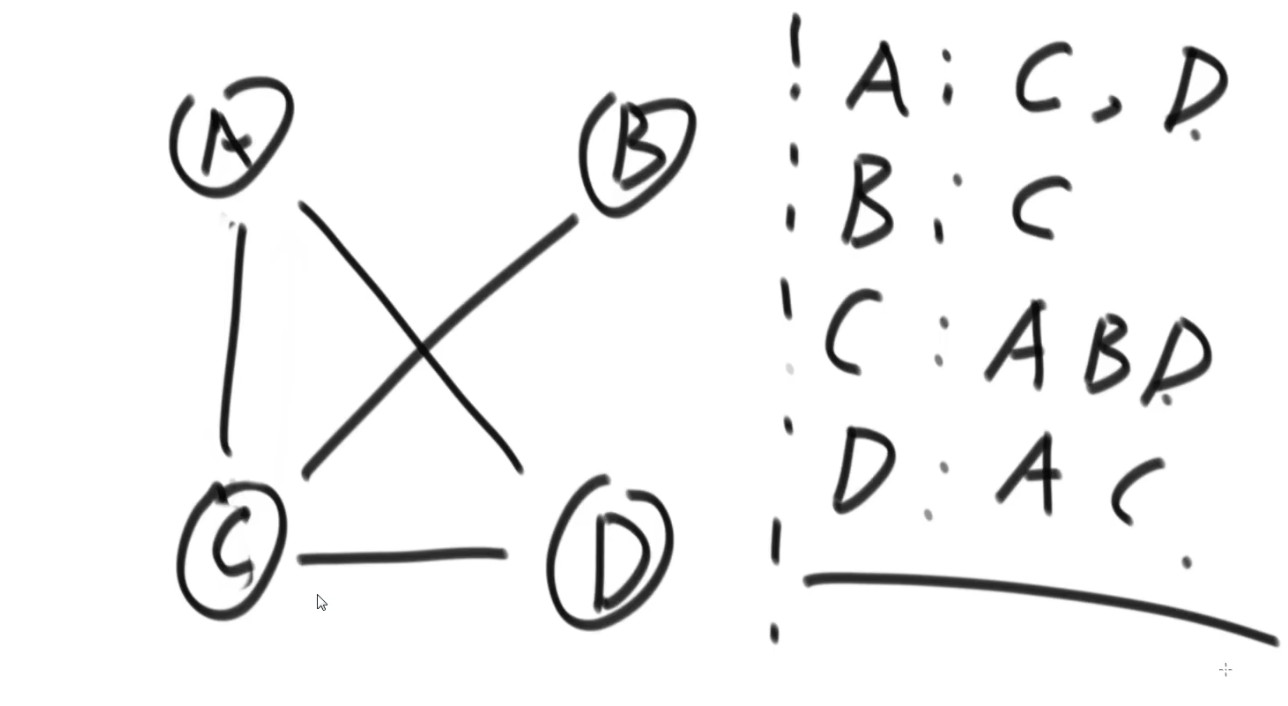 A B
C D
A: C, D
B: C
C: A B D
D: A C